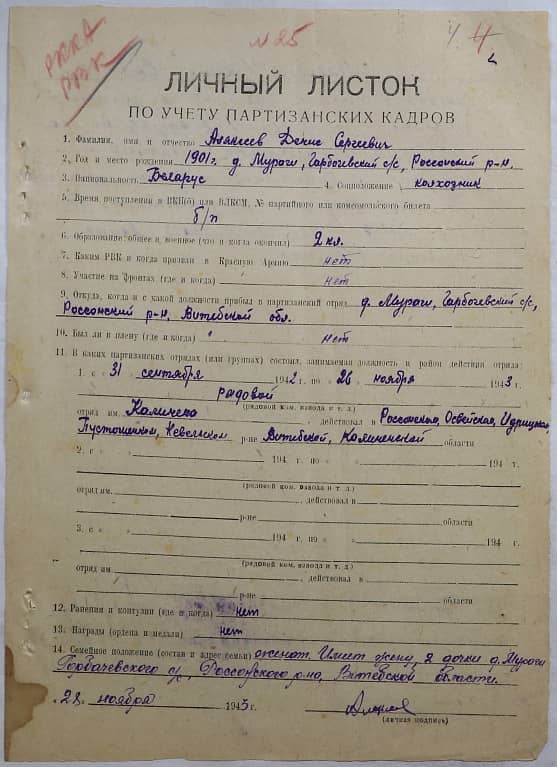 РККА
РВК
№ 25
Ч. 4
ЛИЧНЫЙ ЛИСТОК
ПО УЧЕТУ ПАРТИЗАНСКИХ КАДРОВ
1. Фамилия, имя и отчество Алексеев Денис Сергеевич
2. Год и место рождения 1901г. д. Мураги, Гарбачевский с/с, Россонский р-н.
3. Национальность Беларус 4. Соцположение колходник
5. Время поступления в ВКП(б) или ВЛКСМ, № партийного или комсомольского билета
б/п
6. Образование общее и военное (что и когда окончил) 2 кл.
7. Каким РВК и когда призван в Красную Армию нет
8. Участие на фронтах (где и когда) нет
9. Откуда, когда и с какой должности прибыл в партизанский отряд д. Мураги, Гарбачевский с/с,
Россонский р-н, Витебской обл.
10. Был ли в плену (где и когда) нет
11. В каких партизанских отрядах (или группах) состоял, занимаемая должность и район действия отряда:
1. с „31 сентября 1942 г. по „26 ноября 1943 г.
рядовой
(рядовой ком. взвода и т. д.)
отряд им. Калинена, действовал в Россонском, Освейском, Идрицком,
Пустошенском, Невельском р-не Витебской, Калиненской области
2. с „ „ 194 г. по „ „ 194 г.
(рядовой ком. взвода и т. д.)
отряд им. действовал в
р-не области
3. с „ „ 194 г. по „ „ 194 г.
(рядовой ком. взвода и т. д.)
отряд им. , действовал в
р-не области
12. Ранения и контузии (где и когда) нет
13. Награды (ордена и медали) нет
14. Семейное положение (состав и адрес семьи) женат. Имеет жену, 2 дочки д. Мураги
Горбачевского с/с, Россонского р-на, Витебской области.
„28„ ноября 1943 г.
(личная подпись)